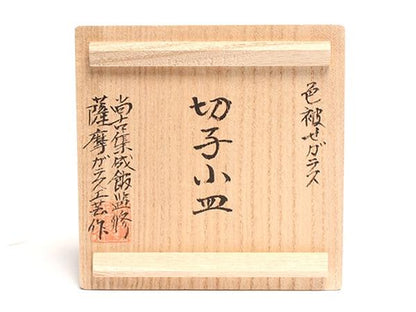 色被せガラス
切子小皿
尚古集成館監修
薩摩ガラス工芸作